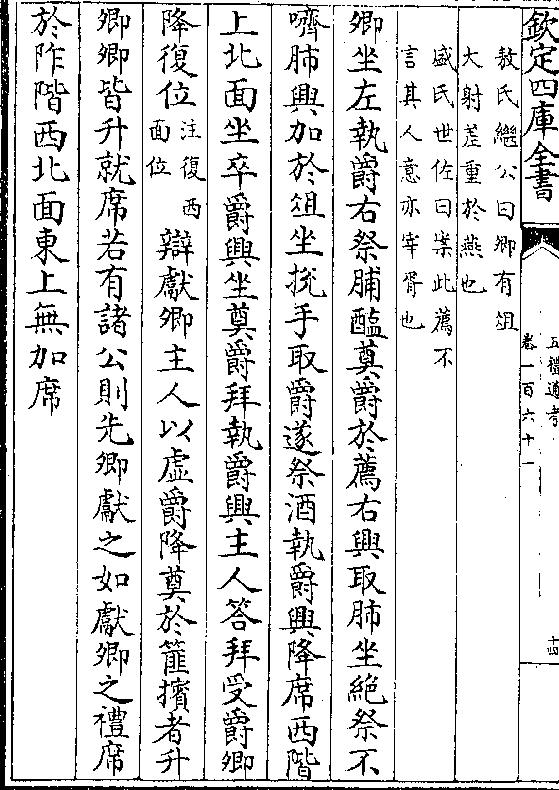 欽定四庫全書
五禮通考
卷一百六十一
十四
敖氏繼公曰卿有俎
大射差重於燕也
盛氏世佐曰案此薦不
言其人意亦宰胥也
卿坐左執爵右祭脯醢奠爵於薦右興取肺坐絶祭不
嚌肺興加於俎坐挩手取爵遂祭酒執爵興降席西階
上北面坐卒爵興坐奠爵拜執爵興主人答拜受爵卿
降復位注復西面位辯獻卿主人以虚爵降奠於篚擯者升
卿卿皆升就席若有諸公則先卿獻之如獻卿之禮席
於阼階西北面東上無加席